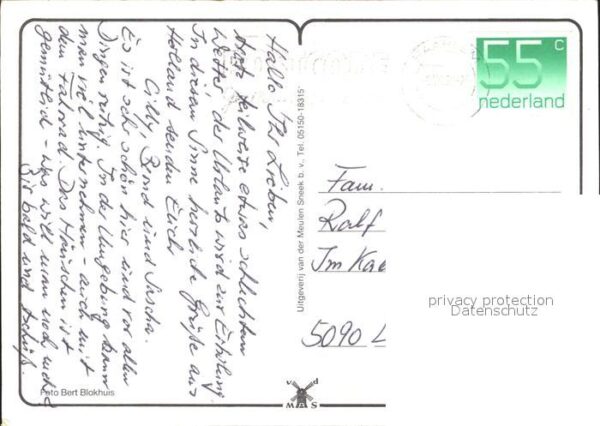 Hallo Ihr Lieben,
trotz teilweise etwas schlechtem
Wetter der Urlaub wird zur Erholung.
In diesem Sinne herzliche Grüße aus
Holland senden Euch
Cilly, Bernd und Sascha.
Es ist sehr schön hier und vor allen
Dingen ruhig. In der Umgebung kann
man viel unternehmen - auch mit
dem Fahrrad. Das Häuschen ist
gemütlich - was will man noch mehr?
Bis bald und tschüß.
Foto Bert Blokhuis
Uitgeverij van der Meulen Sneek b.v., Tel. 05150-18315*
v d
MAS
55 c
nederland
Fam.
Ralf
Im
5090 L
privacy protection
Datenschutz